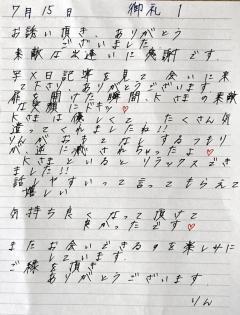 7月15日 御礼 1
お誘い頂き、ありがとう
ございました
素敵な出逢いに感謝です。
写メ日記等を見て 会いに来
て下さり ありがとうございます
扉 開けた瞬間、Kさまの素敵
な笑顔にドキッ♥
Kさまは優しくて たくさん気
遣ってくれましたね!!
りんが逆に癒されちゃったよ♥
Kさまといるとリラックスでき
ました!!
話しやすいって言ってもらえて
嬉しい
気持ち良くなって頂けて
良かったです♥
またお会いできるのを楽しみに
しています。
ご縁を頂き
ありがとうございます
りん